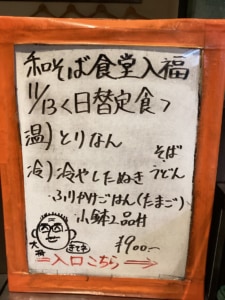 和そば食堂入福
11/13<日替定食>
温)とりなん
冷)冷やしたぬき
そば
うどん
ふりかけごはん(たまご)
小鉢2品付
¥900-
大将
きてネ
入口こちら→